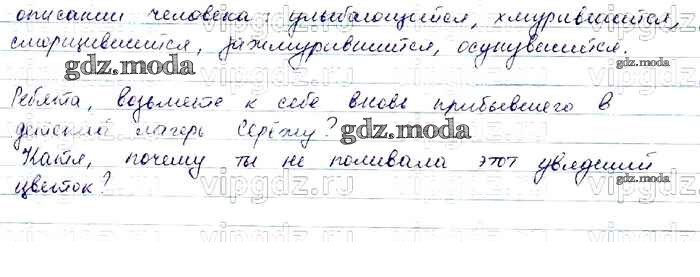 описании человека: улыбающийся, хмурившийся,
сморщившийся, зажмурившийся, осунувшийся.
gdz.moda gdz.moda
Ребята, возьмете к себе вновь прибывшего в
детский лагерь Серёжу? gdz.moda
Катя, почему ты не поливала этот увядший
gdz.moda
цветок?
vipgdz.ru vipgdz.ru vipgdz.ru